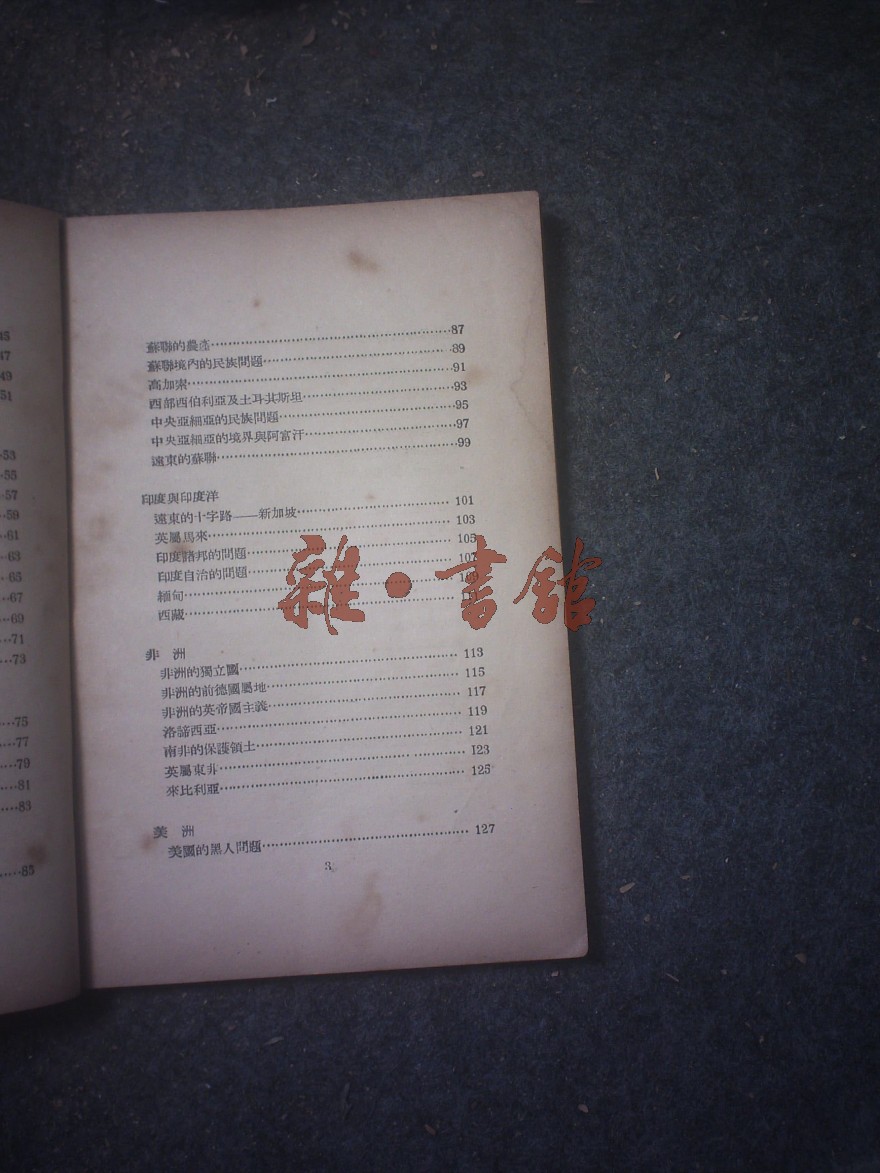 45
47
49
51
53
55
57
59
61
63
65
67
69
71
73
75
77
79
81
83
85
蘇聯的農產……87
蘇聯境內的民族問題……89
高加索……91
西部西伯利亞及土耳其斯坦……93
中央亞細亞的民族問題……95
中央亞細亞的境界與阿富汗……97
遠東的蘇聯……99
印度與印度洋
遠東的十字路——新加坡……101
英屬馬來……103
印度諸邦的問題……105
印度自治的問題……107
緬甸……109
西藏……
非洲
非洲的獨立國……113
非洲的前德國屬地……115
非洲的英帝國主義……117
洛諦西亞……119
南非的保護領土……121
英屬東非……123
來比利亞……125
美洲
美國的黑人問題……127
3
雜·書館